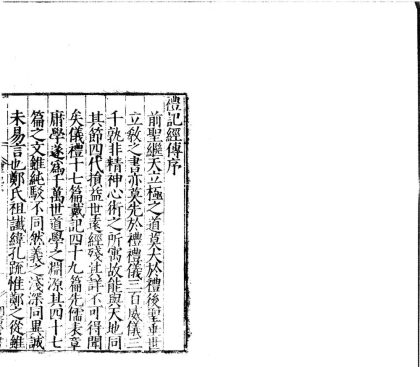 禮記經傳序
前聖繼天立極之道莫大於禮後聖垂世
立敎之書亦莫先於禮禮儀三百威儀三
千孰非精神心術之所寓故能與天地同
其節四代損益世遠經殘其詳不可得聞
矣儀禮十七篇戴記四十九篇先儒表章
庸學遂爲千萬世道學之淵源其四十七
篇之文雖純駁不同然義之淺深同異誠
未易言也鄭氏祖讖緯孔疏惟鄭之從雖